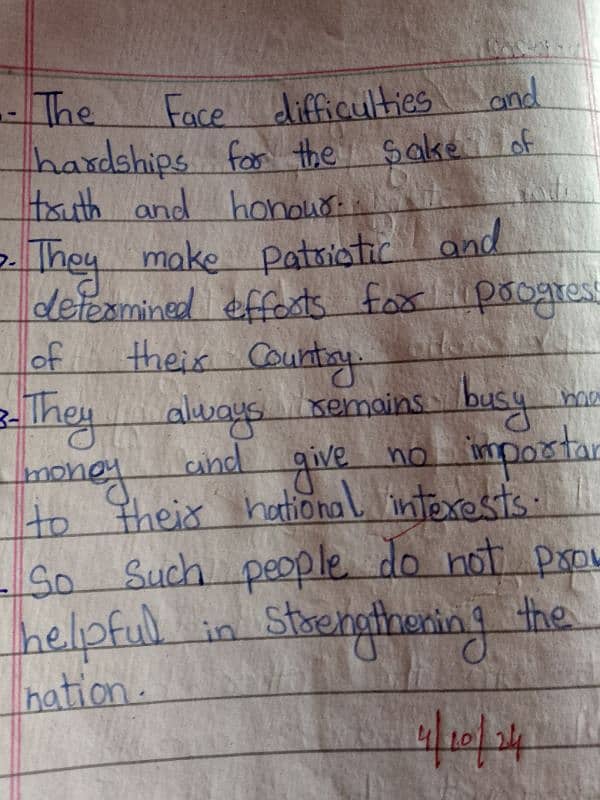 - The Face difficulties and
hardships for the sake of
truth and honour.
2- They make Patriotic and
determined efforts for progress
of their Country.
3- They always remains busy
money and give no importan
to their national interests.
- So Such people do not prov
helpful in Strengthening the
nation.
4/10/24